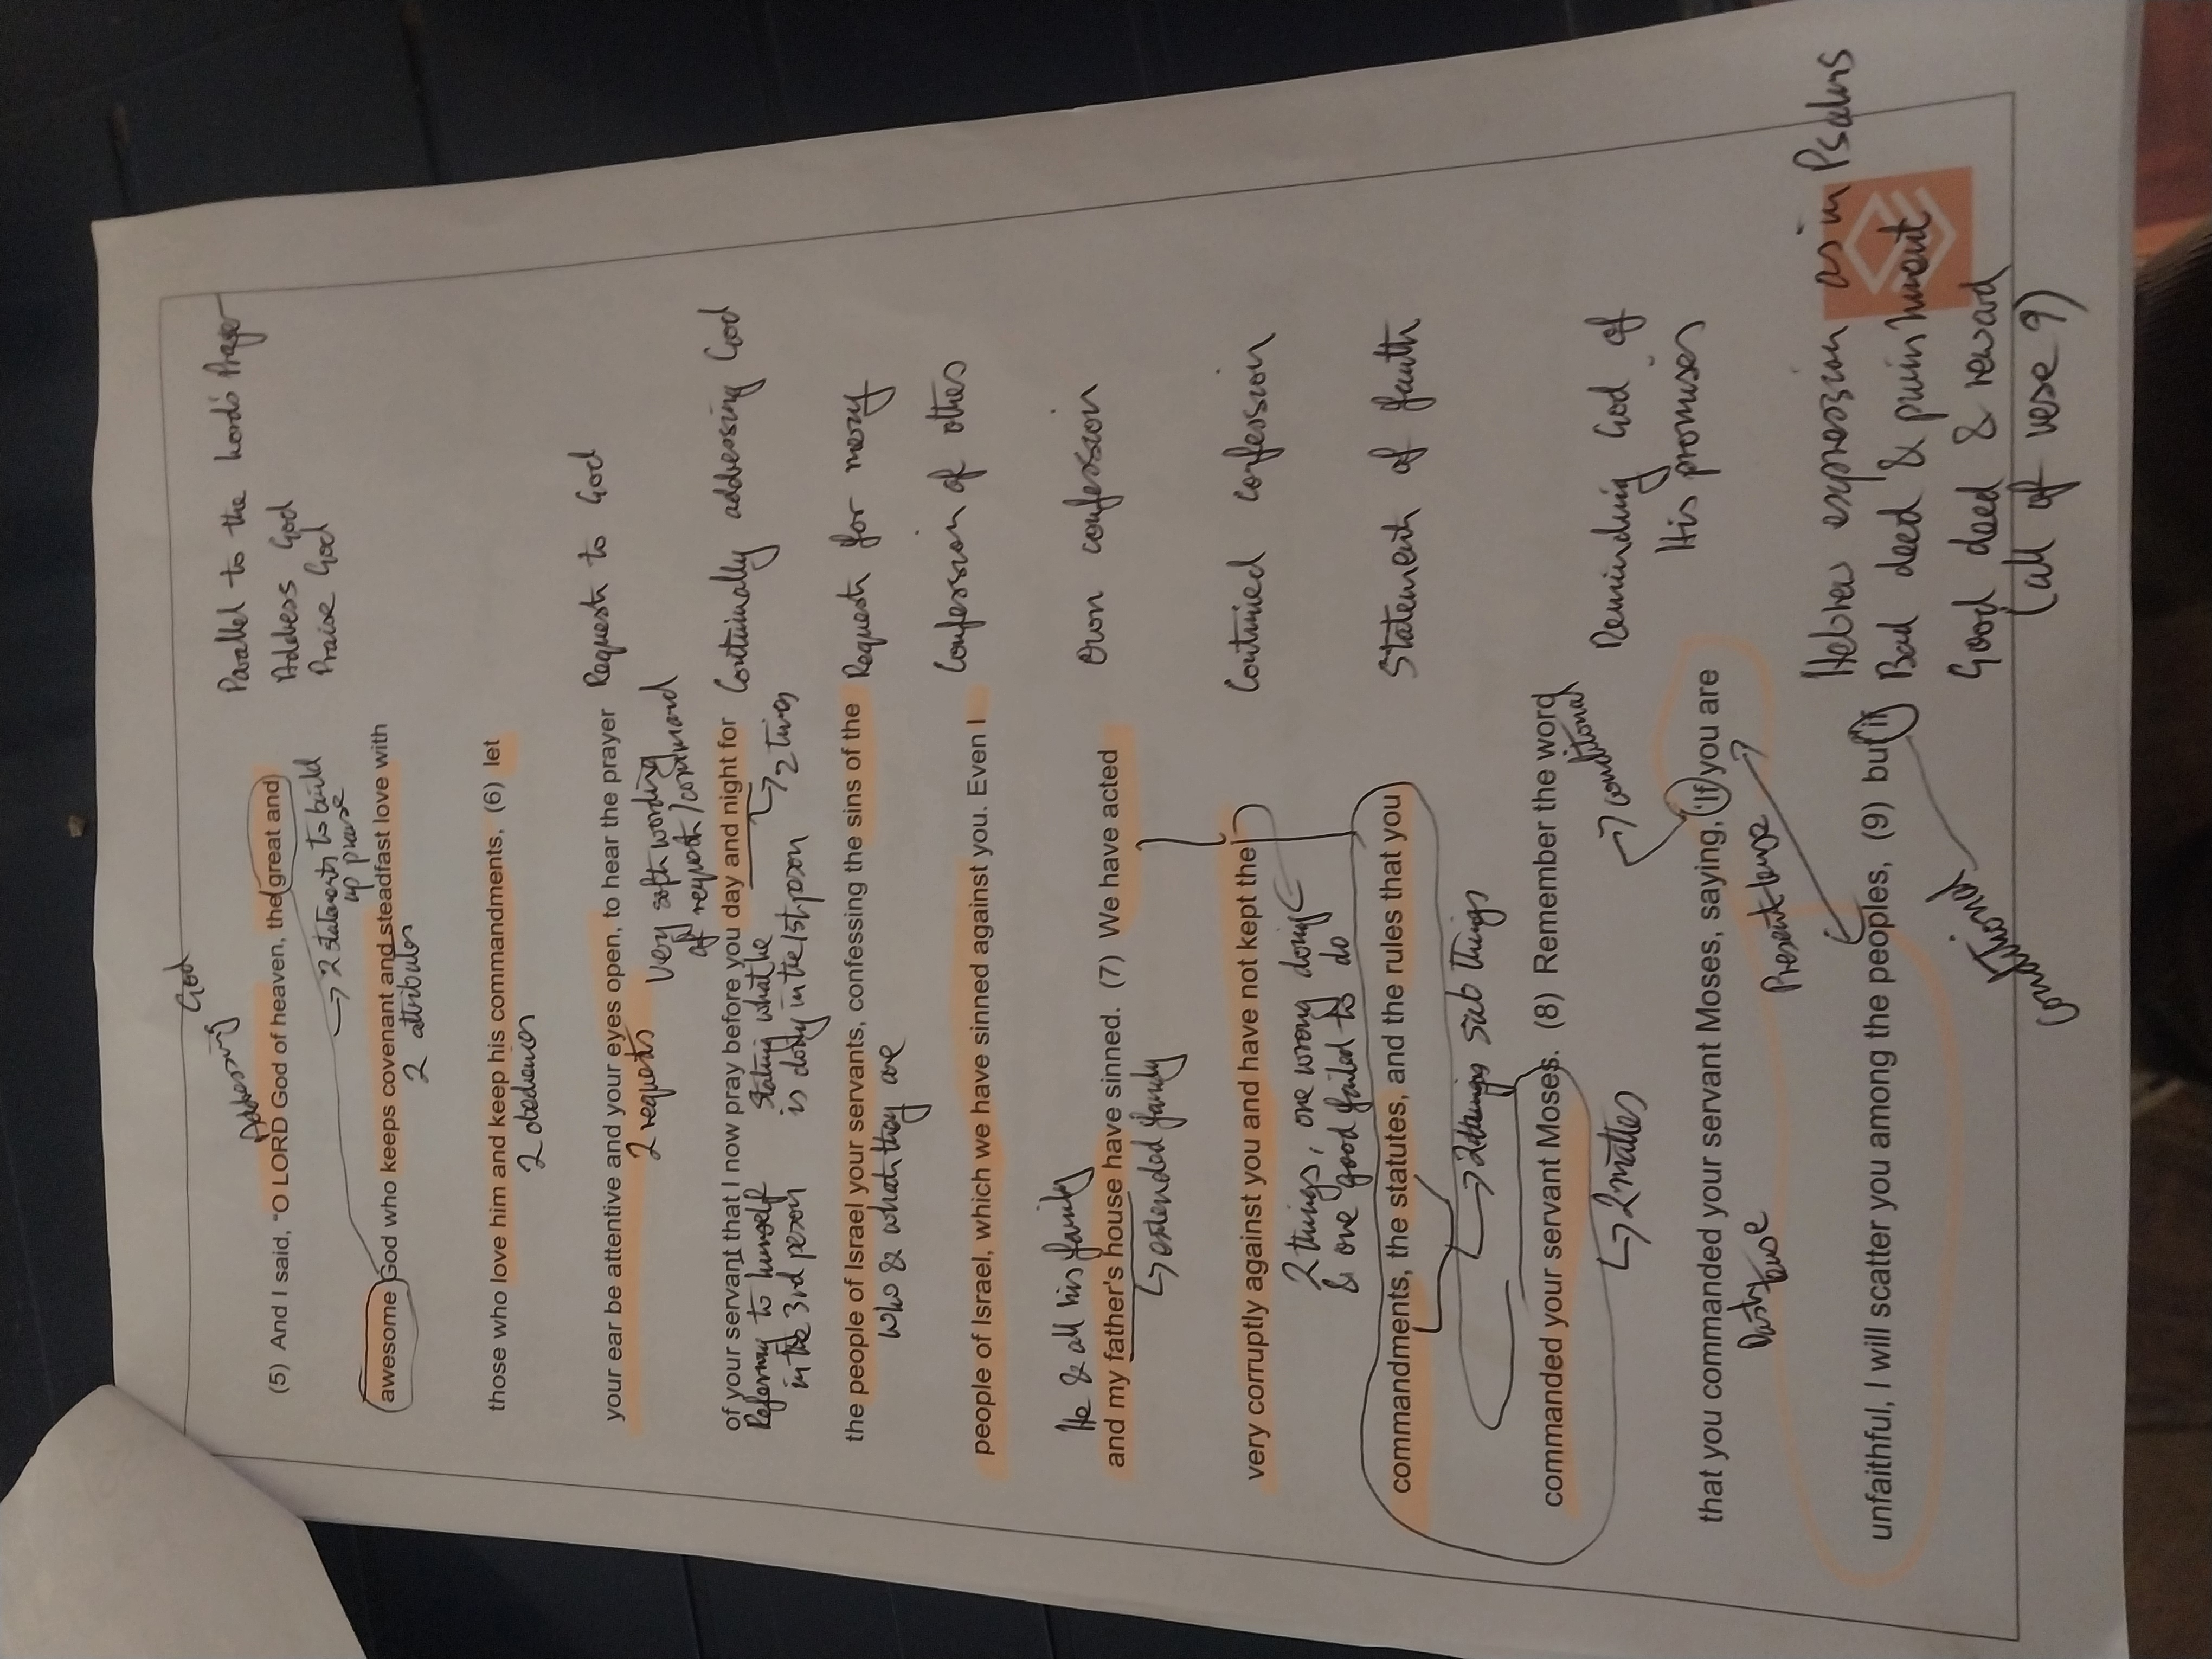 Addressing God
(5) And I said, "O LORD God of heaven, the great and
Parallel to the Lord's Prayer
Address God
Praise God
→ 2 statements to build
up praise
awesome God who keeps covenant and steadfast love with
2 attributes
those who love him and keep his commandments, (6) let
2 obediences
your ear be attentive and your eyes open, to hear the prayer
Request to God
2 requests
Very soft wording
of request/command
of your servant that I now pray before you day and night for
Continually addressing God
Referring to himself
in the 3rd person
Stating what he
is doing in the 1st person
→ 2 times
the people of Israel your servants, confessing the sins of the
Request for mercy
Who & what they are
Confession of others
people of Israel, which we have sinned against you. Even I
He & all his family
and my father's house have sinned. (7) We have acted
Own confession
↳ extended family
very corruptly against you and have not kept the
Continued confession
2 things, one wrong doing
& one good failed to do
commandments, the statutes, and the rules that you
Statement of fauth
sub things
commanded your servant Moses. (8) Remember the word
↳ 2 matters
→ conditional
Reminding God of
His promises
that you commanded your servant Moses, saying, 'If you are
Past tense
Present tense
Hebrew expression as in Psalms
unfaithful, I will scatter you among the peoples, (9) but if
Bad deed & punishment
Good deed & reward
(all of verse 9)
Conditional